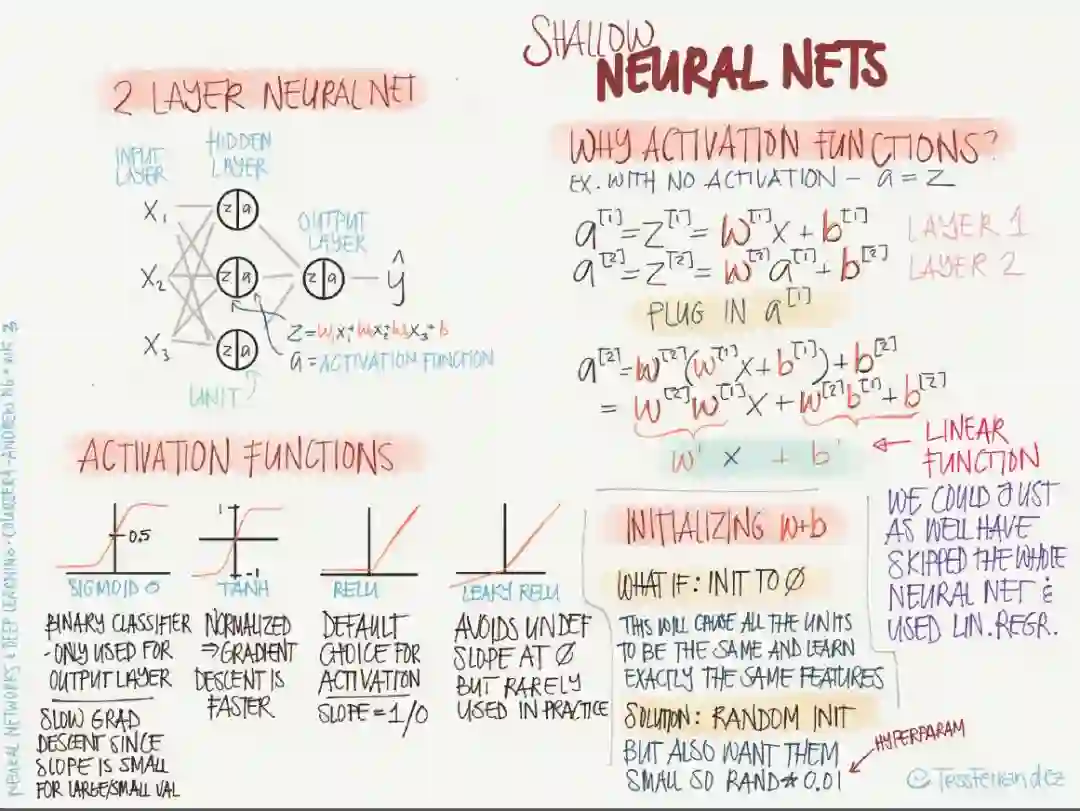 SHALLOW
NEURAL NETS
2 LAYER NEURAL NET
INPUT
LAYER
HIDDEN
LAYER
OUTPUT
LAYER
X₁
X₂
X₃
z|a
z|a
z|a
z|a
ŷ
Z=W₁X₁+W₂X₂+W₃X₃+b
a=ACTIVATION FUNCTION
UNIT
WHY ACTIVATION FUNCTIONS?
EX. WITH NO ACTIVATION – a = Z
a^[1]=Z^[1]= W^[1]X + b^[1] LAYER 1
a^[2]=Z^[2]= W^[2]a^[1]+b^[2] LAYER 2
PLUG IN a^[1]
a^[2]=W^[2](W^[1]X+b^[1])+b^[2]
= W^[2]W^[1]X + W^[2]b^[1]+b^[2]
W' X + b'
LINEAR
FUNCTION
WE COULD JUST
AS WELL HAVE
SKIPPED THE WHOLE
NEURAL NET &
USED LIN.REGR.
ACTIVATION FUNCTIONS
0.5
SIGMOID σ
BINARY CLASSIFIER
-ONLY USED FOR
OUTPUT LAYER
SLOW GRAD
DESCENT SINCE
SLOPE IS SMALL
FOR LARGE/SMALL VAL
1
-1
TANH
NORMALIZED
⇒GRADIENT
DESCENT IS
FASTER
RELU
DEFAULT
CHOICE FOR
ACTIVATION
SLOPE = 1/0
LEAKY RELU
AVOIDS UNDEF
SLOPE AT Ø
BUT RARELY
USED IN PRACTICE
INITIALIZING W+b
WHAT IF: INIT TO Ø
THIS WILL CAUSE ALL THE UNITS
TO BE THE SAME AND LEARN
EXACTLY THE SAME FEATURES
SOLUTION: RANDOM INIT
BUT ALSO WANT THEM
SMALL SO RAND * 0.01
HYPERPARAM
©TessFerrandez
NEURAL NETWORKS & DEEP LEARNING · COURSERA - ANDREW NG · WK 3